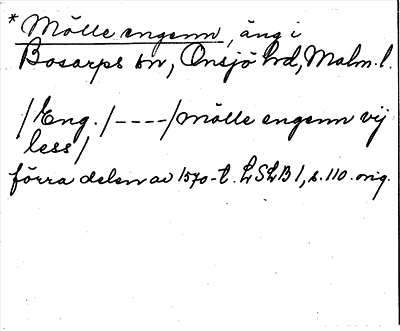 * Mölle engenn, äng i
Bosarps sn, Onsjö hd, Malm. l.
/Eng./----/mölle engenn vij
less/
förra delen av 1570-t. LSLB 1, s. 110. orig.